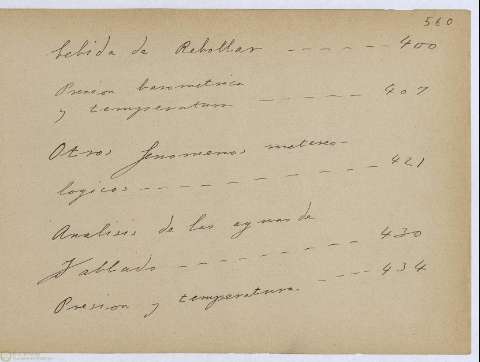 560
bebida de Rebollar ------ 400
Presion barometrica
y temperatura ----- 407
Otros fenomenos metereo-
logicos --------- 421
Analisis de las aguas de
Vallado ------- 430
Presion y temperatura. ---- 434